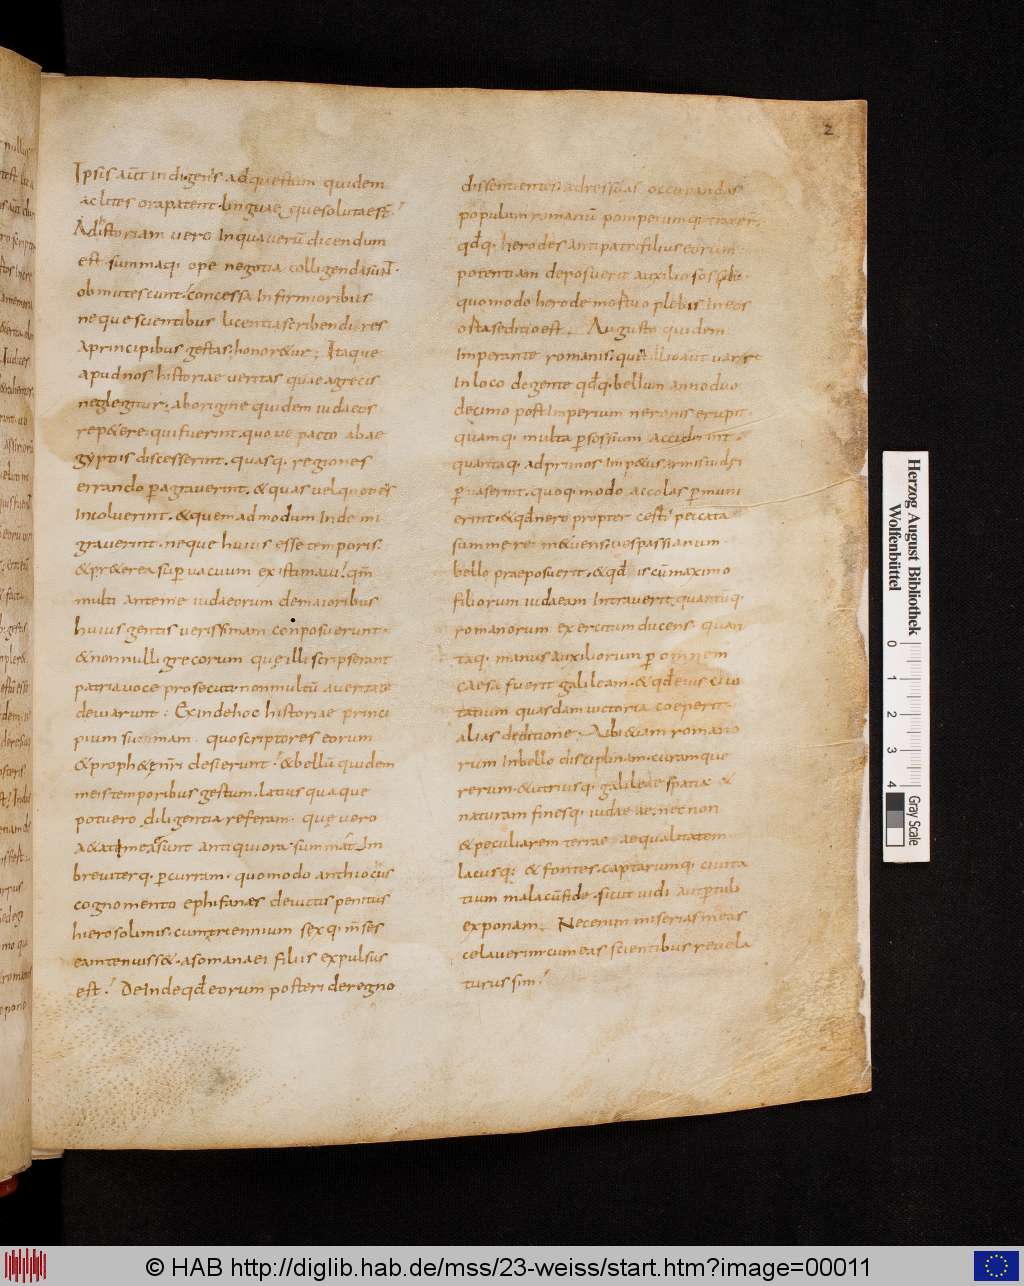 2
Ipsis aut̄ indigenis ad questum quidem
ac lites ora patent linguaeque solutae st̄.
Ad istoriam vero in qua verū dicendum
est summaq; ope negotia colligenda sunt.
obmutescunt. concessa infirmioribus
neque scientibus licentia scribendi res
a principibus gestas. honor&ur; Itaque
apud nos historiae veritas quae a grecis
neglegitur. aborigine quidem iudaeos
rep&ere. qui fuerint. quo ve pacto ab ae
gyptiis discesserint. quasq; regiones
errando pagraverint. & quas velquotiēs
incoluerint. & quemadmodum inde mi
graverint. neque huius esse temporis.
& pr&erea supervacuum existimavi. qm̄
multi ante me iudaeorum de maioribus
huius gentis verissimam conposuerunt.
& nonnulli grecorum quę illi scripserant
patria voce prosecuti non multū a veritate
deviarunt: Ex inde hoc historiae princi
pium sumam. quo scriptores eorum
& proph&ę nr̄i desierunt. & bellū quidem
meis temporibus gestum. latius quaque
potuero diligentia referam. quę vero
a&atem meā sunt antiquiora summatī. im
breviterq; pcurram. quomodo anthiocus
cognomento ephifanaes devictis penitus
hierosolimis. cum triennium sex q; m̄ses
eam tenuiss&. asomanaei filiis expulsus
est. Deinde qd̄ eorum posteri de regno
dissentientes. ad res suas occupandas
populum romanū pompeiumq; traxer;
qd̄q; herodes antipatri filius eorum
potentiam deposuerit auxilio sossii.
quomodo herode mortuo plebis in eos
orta seditio est. Augusto quidem
imperante romanis. quintilio aut̄ varo
in loco degente qd̄q; bellum anno duo
decimo post imperium neronis erupit.
quamq; multa p sossium acciderint.
quantaq; ad primos imp&us armis iudei
pvaserint. quoq; modo accolas pmuni
erint. & qd̄ nero propter cesti peccata
summe rei m&uens. vespassianum
bello praeposuerit. & qd̄ is cū maximo
filiorum iudaeam intraverit. quantūq;
romanorum exercitum ducens. quan
taq; manus auxiliorum p omnem
caesa fuerit galileam. & qd̄ eius civi
tatium quasdam victoria coeperit.
alias deditione. Ubi &iam romano
rum in bello disciplinam. curamque
rerum. & utriusq; galileae spatia &
naturam finesq; iudaeae. nec non
& peculiarem terrae aequalitatem
lacusq; & fontes. captarumq; civita
tium mala cū fide. sicut vidi aut ptuli
exponam. Nec enim miserias meas
celaverim cum eas scientibus revela
turus sim.
Herzog August Bibliothek
Wolfenbüttel
0 1 2 3 4
Gray Scale
© HAB http://diglib.hab.de/mss/23-weiss/start.htm?image=00011